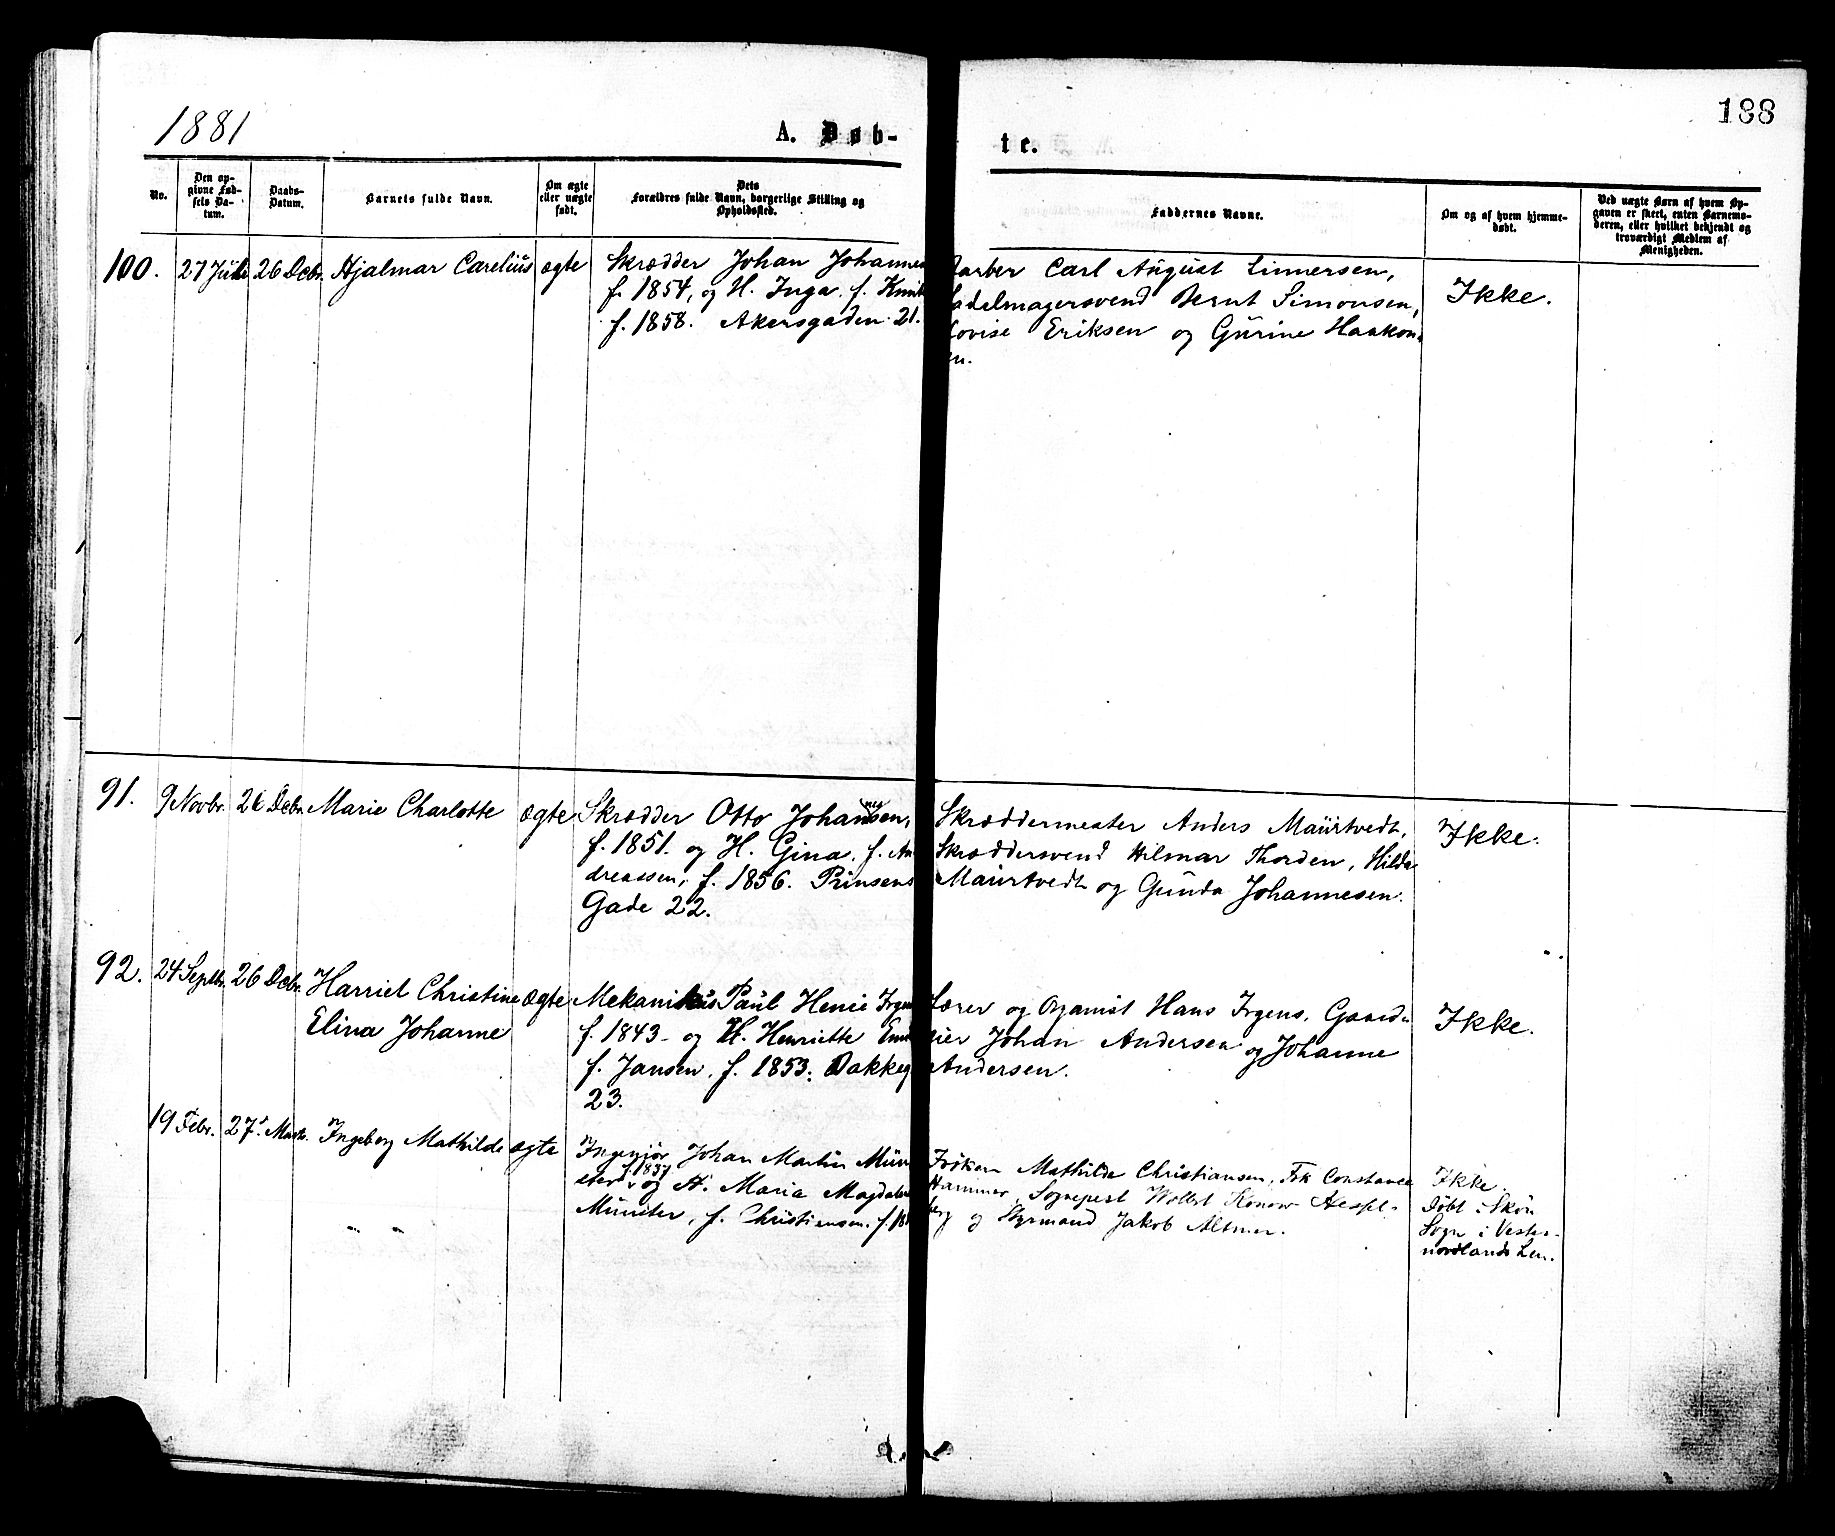 188
1881
A. Døb-
te.
No.
Den op-
givne Fød-
sels Da-
tum.
Daabs-
Datum.
Barnets fulde Navn.
Om ægte
eller uægte
født.
Dets
Forældres fulde Navn, borgerlige Stilling og
Opholdssted.
Faddernes Navne.
Om og af hvem hjemme-
døbt.
Ved uægte Børn af hvem Op-
gaven er skeet, enten Barnemo-
deren, eller hvilket bekjendt og
troværdigt Medlem af
Menigheden.
100. 27 Juli 26 Decbr. Hjalmar Carelius ægte
Skrædder Johan Johannes
f. 1854, og H. Inga f.
f. 1858. Akersgaden 21.
Carl August Linnersen,
adelmagersvend Bernt Simonsen,
ovise Eriksen og Gurine Haakon-
en.
Ikke.
91. 9 Novbr. 26 Decbr. Marie Charlotte ægte
Skrædder Otto Johannesen,
f. 1851. og H. Gina. f. An
dreassen, f. 1856. Prinsens
Gade 22.
Skræddermester Anders Maurtvedt,
Skræddersvend Hilmar Thorden, Hilda
Maurtvedt og Gunda Johannesen.
Ikke.
92. 24 Septbr. 26 Decbr. Harriet Christine
Elina Johanne
ægte
Mekanikus Paul Henic Irgens
f. 1843 - og H. Henriette
f. Jansen, f. 1853. Bakkeg
23.
Lærer og Organist Hans Irgens, Gaard-
eier Johan Andersen og Johanne
Andersen.
Ikke.
19 Febr. 27. Marts. Ingeborg Mathilde ægte
" "
Ingeniør Johan Martin Mün
ster f. 1837 og H. Maria Magdalene
Münster, f. Christiansen. f. 18
Frøken Mathilde Christiansen, Frk Constance
Hammer, Sogneprest Wollert Konow Hessel-
berg og Styrmand Jakob Altmer.
Ikke.
Døbt i Skön
Sogn i Vester-
nordlands Len.